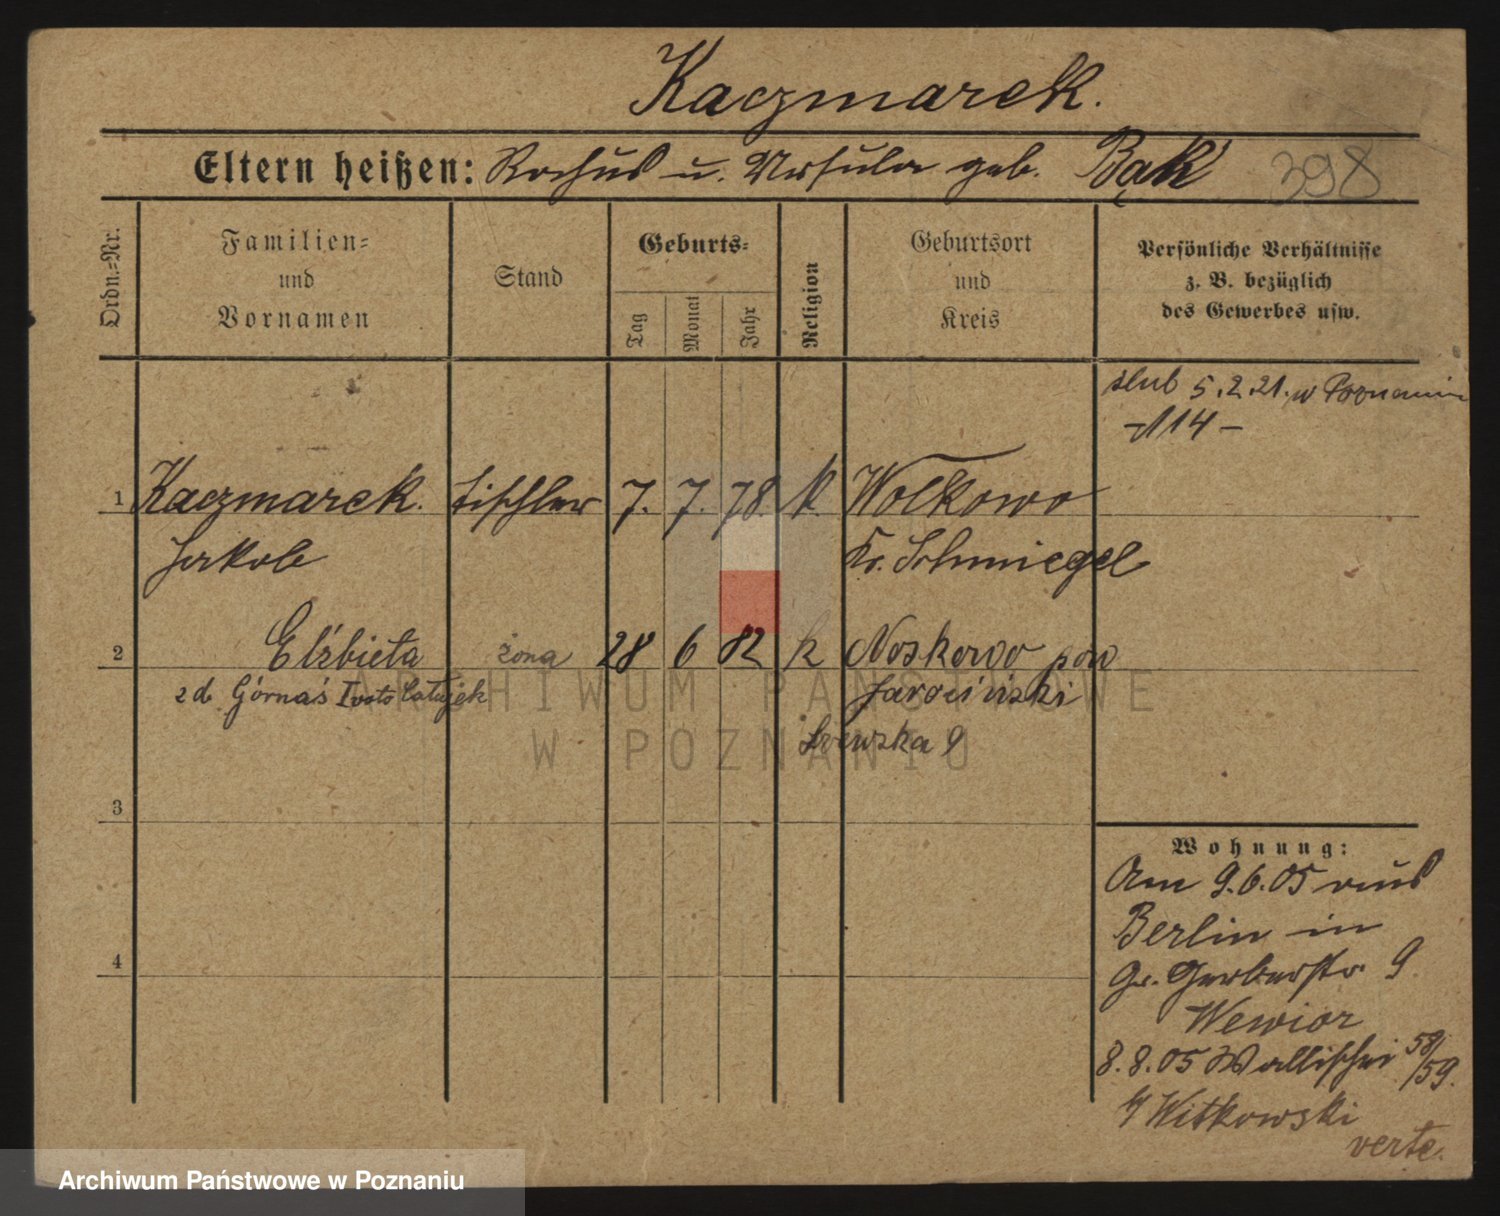 Kaczmarek.
Eltern heißen: Rochus u. Ursula geb. Bąk 398
Ordn.=Nr.
Familien=
und
Vornamen
Stand
Geburts=
Tag
Monat
Jahr
Religion
Geburtsort
und
Kreis
Persönliche Verhältnisse
z. B. bezüglich
des Gewerbes usw.
slub 5.2.21. w Poznaniu
114 –
1 Kaczmarek. Tischler 7. 7. 78. k. Wolkowo
Jakob Kr. Schmiegel
2 Elżbieta żona 28 6 82 k Noskowo pow
z d. Górnaś I voto Jarociński
Szewska 9
3
4
Wohnung:
Am 9.6.05 aus
Berlin in
Gr. Gerberstr. 9
Wewior
8.8.05 Wallischei 58/59.
Witkowski
verte.
ARCHIWUM PAŃSTWOWE
W POZNANIU
Archiwum Państwowe w Poznaniu